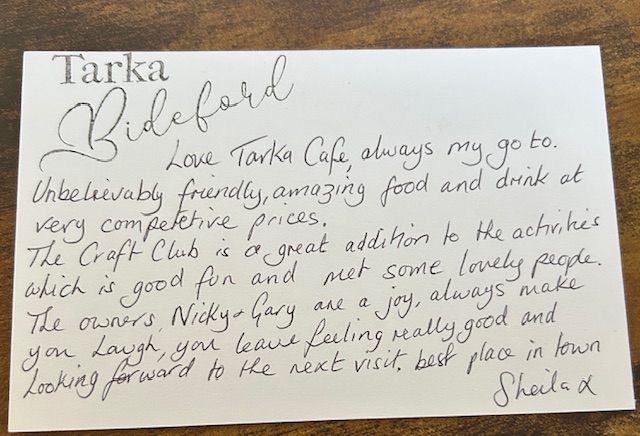 Tarka
Bideford
Love Tarka Cafe, always my go to.
Unbelievably friendly, amazing food and drink at
very competetive prices.
The Craft Club is a great addition to the activities
which is good fun and met some lovely people.
The owners, Nicky & Gary are a joy, always make
you Laugh, you leave feeling really good and
Looking forward to the next visit. best place in town
Sheila x